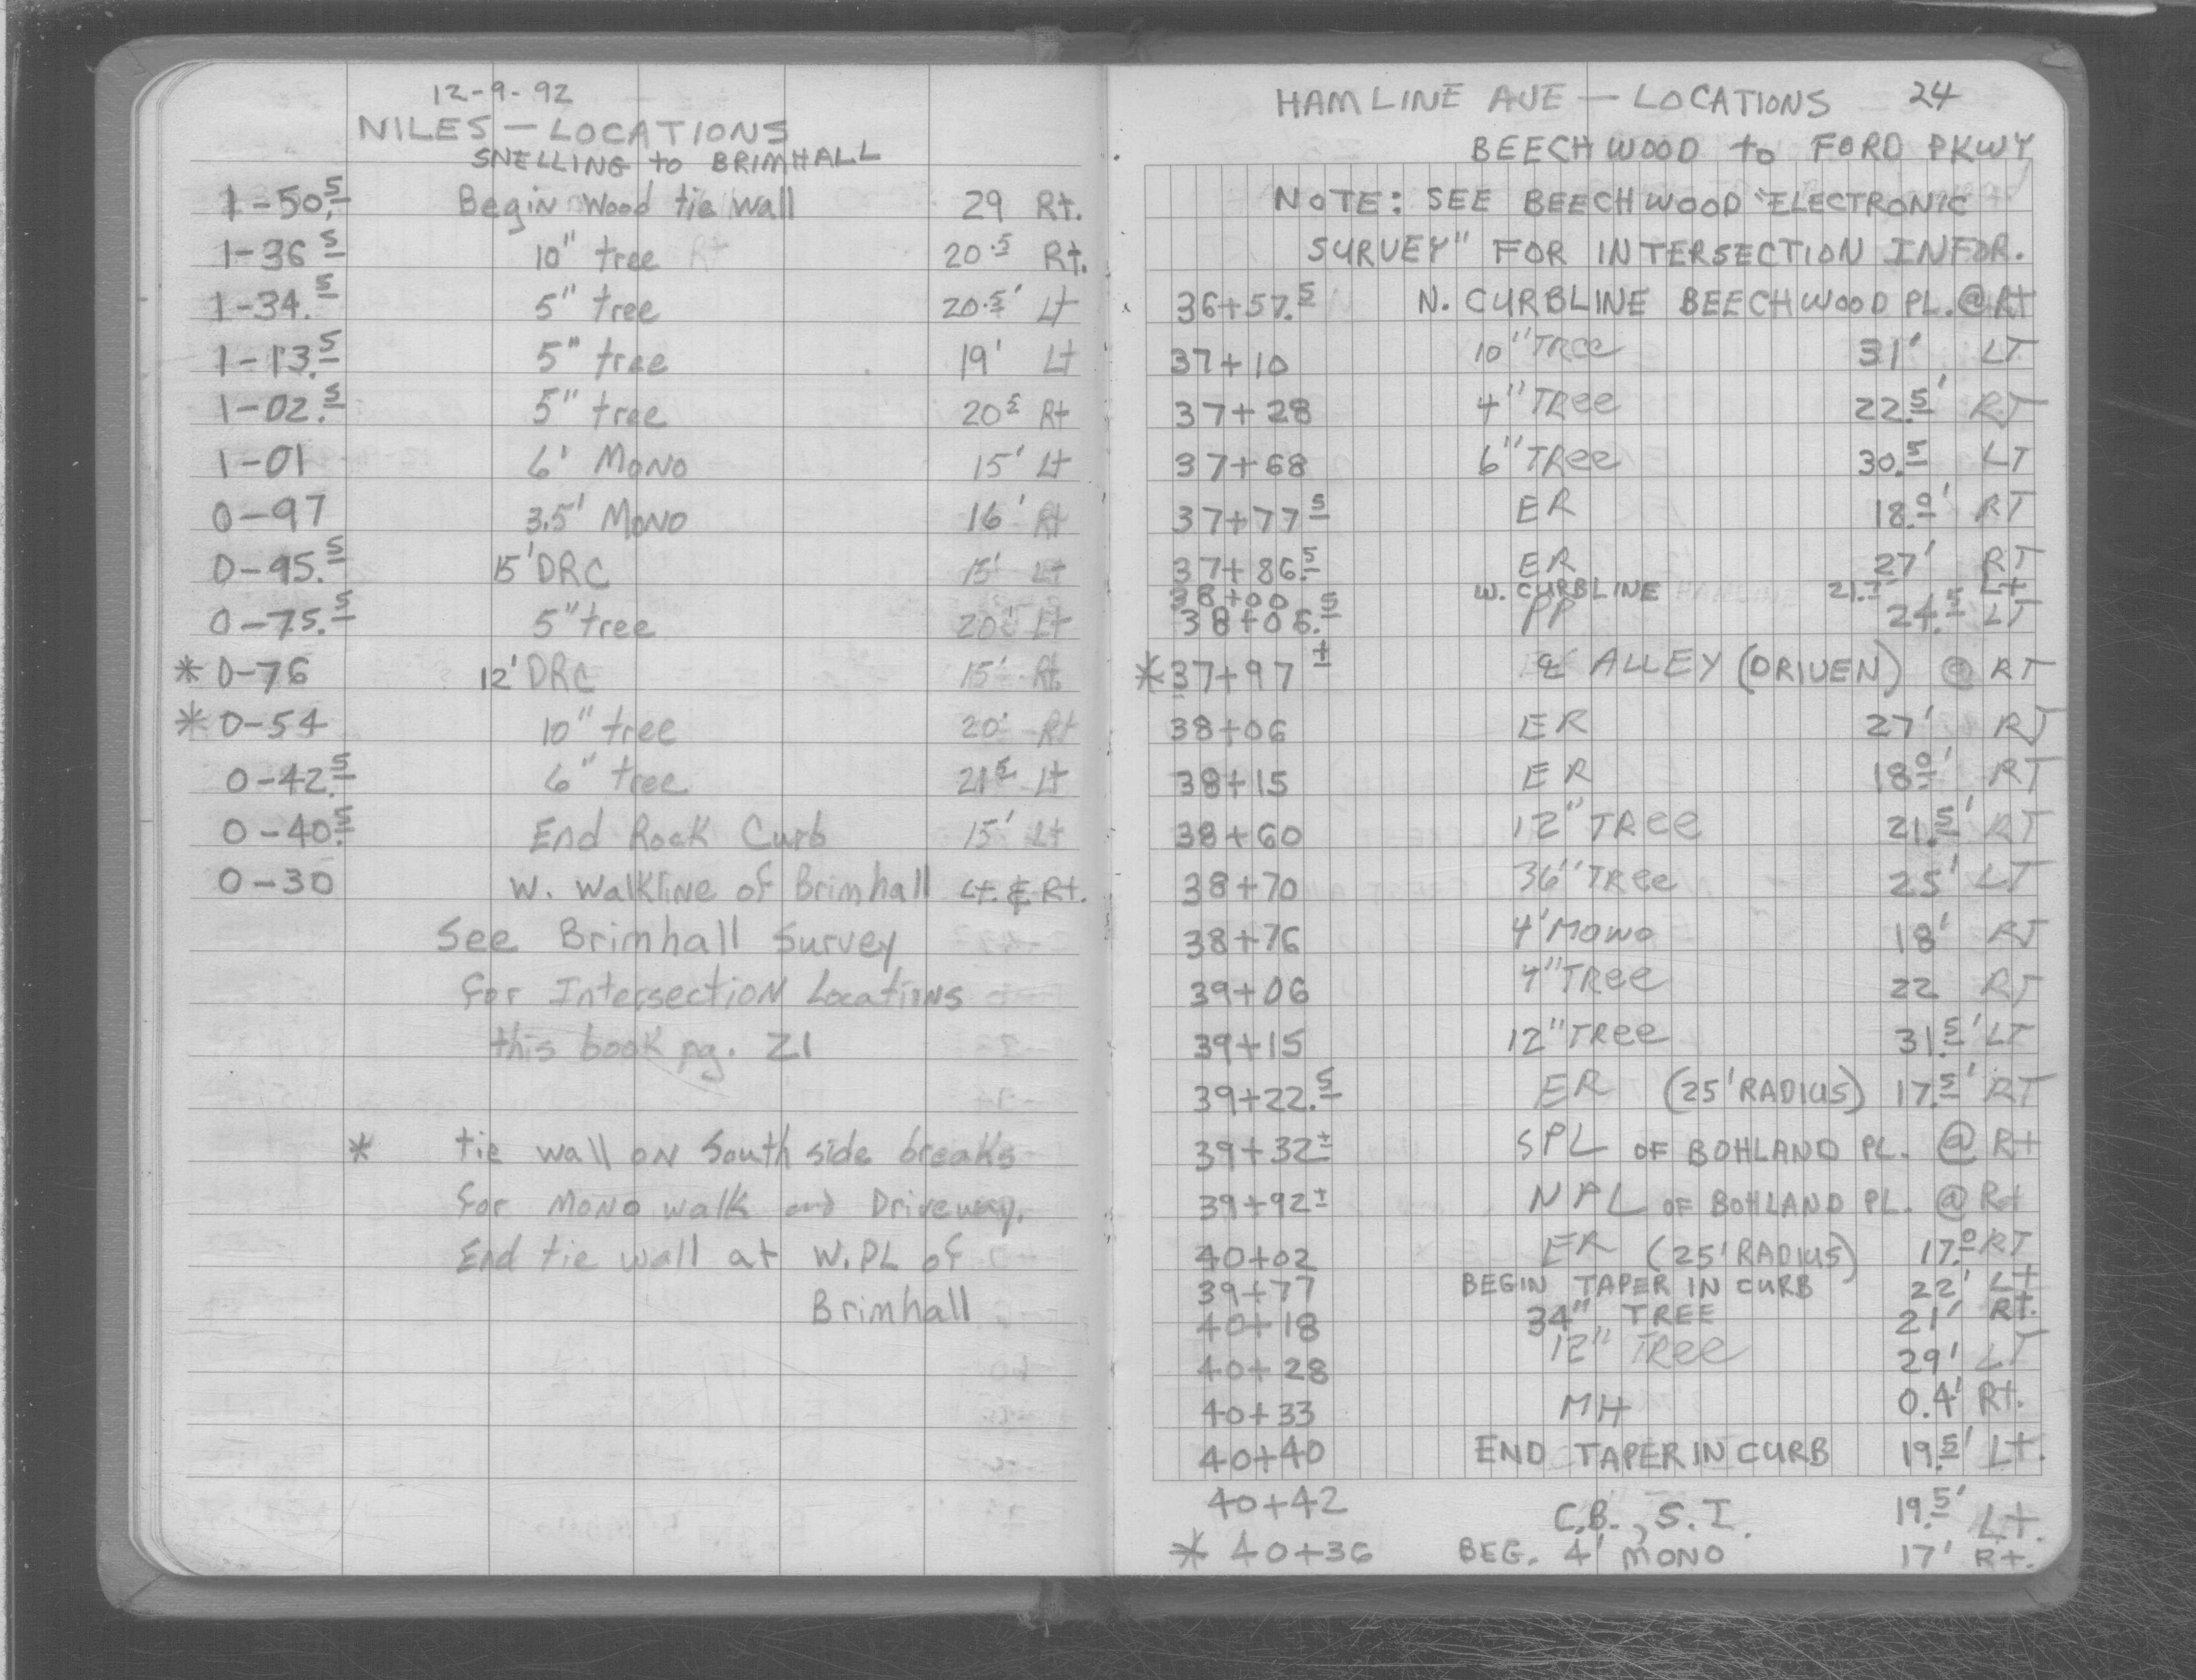 12-9-92
NILES — LOCATIONS
SNELLING to BRIMHALL
1-50.5 Begin Wood tie wall 29 Rt.
1-36 5 10" tree 20.5 Rt.
1-34.5 5" tree 20.5' Lt
1-13.5 5" tree 19' Lt
1-02.5 5" tree 20 5 Rt
1-01 6' MONO 15' Lt
0-97 3.5' MONO 16' Rt
0-95.5 15' DRC 15' Lt
0-75.5 5" tree 20' Lt
* 0-76 12' DRC 15' Rt
* 0-54 10" tree 20' Rt
0-42.5 6" tree 21 5 Lt
0-40.5 End Rock Curb 15' Lt
0-30 W. Walkline of Brimhall Lt. & Rt.
See Brimhall Survey
for Intersection Locations
this book pg. 21
* tie wall on South side breaks
for Mono walk and Driveway.
End tie wall at W.PL of
Brimhall
HAMLINE AVE — LOCATIONS 24
BEECHWOOD to FORD PKWY
NOTE: SEE BEECHWOOD "ELECTRONIC
SURVEY" FOR INTERSECTION INFOR.
36+57.5 N. CURBLINE BEECHWOOD PL. @ Rt
37+10 10" TREE 31' LT
37+28 4" TREE 22.5' RT
37+68 6" TREE 30.5 LT
37+77 5 ER 18.0' RT
37+86.5 ER 27' RT
38+00 W. CURBLINE Lt
38+06.5 PP 24.5 LT
* 37+97 ± ℄ ALLEY (DRIVEN) @ RT
38+06 ER 27' RT
38+15 ER 18 0' RT
38+60 12" TREE 21.5' RT
38+70 36" TREE 25' LT
38+76 4' MONO 18' RT
39+06 4" TREE 22 RT
39+15 12" TREE 31.5' LT
39+22.5 ER (25' RADIUS) 17.5' RT
39+32± SPL OF BOHLAND PL. @ Rt
39+92± NPL OF BOHLAND PL. @ Rt
40+02 ER (25' RADIUS) 17.0 RT
39+77 BEGIN TAPER IN CURB 22' Lt
40+18 34" TREE 21' Rt.
40+28 12" TREE 29' LT
40+33 MH 0.4' Rt.
40+40 END TAPER IN CURB 19.5' Lt.
40+42 C.B., S.I. 19.5' Lt.
* 40+36 BEG. 4' MONO 17' Rt.